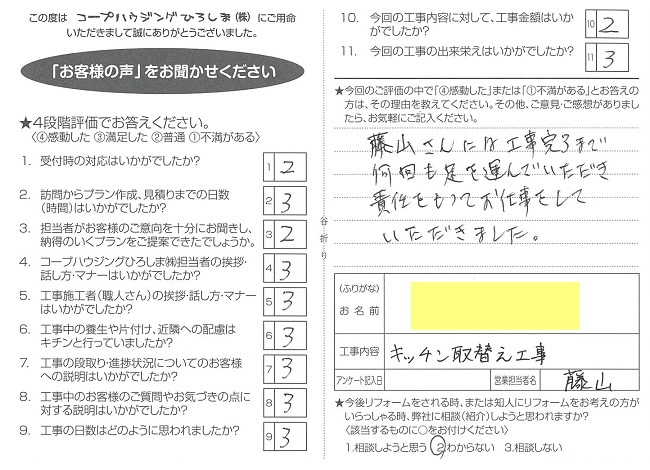 この度は コープハウジングひろしま(株) にご用命
いただきまして誠にありがとうございました。
「お客様の声」をお聞かせください
★4段階評価でお答えください。
〈④感動した ③満足した ②普通 ①不満がある〉
1. 受付時の対応はいかがでしたか? 1 2
2. 訪問からプラン作成、見積りまでの日数
(時間)はいかがでしたか? 2 3
3. 担当者がお客様のご意向を十分にお聞きし、
納得のいくプランをご提案できたでしょうか。 3 2
4. コープハウジングひろしま㈱担当者の挨拶・
話し方・マナーはいかがでしたか? 4 3
5. 工事施工者(職人さん)の挨拶・話し方・マナー
はいかがでしたか? 5 3
6. 工事中の養生や片付け、近隣への配慮は
キチンと行っていましたか? 6 3
7. 工事の段取り・進捗状況についてのお客様
への説明はいかがでしたか? 7 3
8. 工事中のお客様のご質問やお気づきの点に
対する説明はいかがでしたか? 8 3
9. 工事の日数はどのように思われましたか? 9 3
谷折り
10. 今回の工事内容に対して、工事金額はいか
がでしたか? 10 2
11. 今回の工事の出来栄えはいかがでしたか? 11 3
★今回のご評価の中で「④感動した」または「①不満がある」とお答えの
方は、その理由を教えてください。その他、ご意見・ご感想がありまし
たら、お気軽にご記入ください。
藤山さんには工事完了まで
何回も足を運んでいただき
責任をもってお仕事をして
いただきました。
(ふりがな)
お名前
工事内容 キッチン取替え工事
アンケート記入日 営業担当者名 藤山
★今後リフォームをされる時、または知人にリフォームをお考えの方が
いらっしゃる時、弊社に相談(紹介)しようと思われますか?
〈該当するものに○をお付けください〉
1.相談しようと思う 2.わからない 3.相談しない